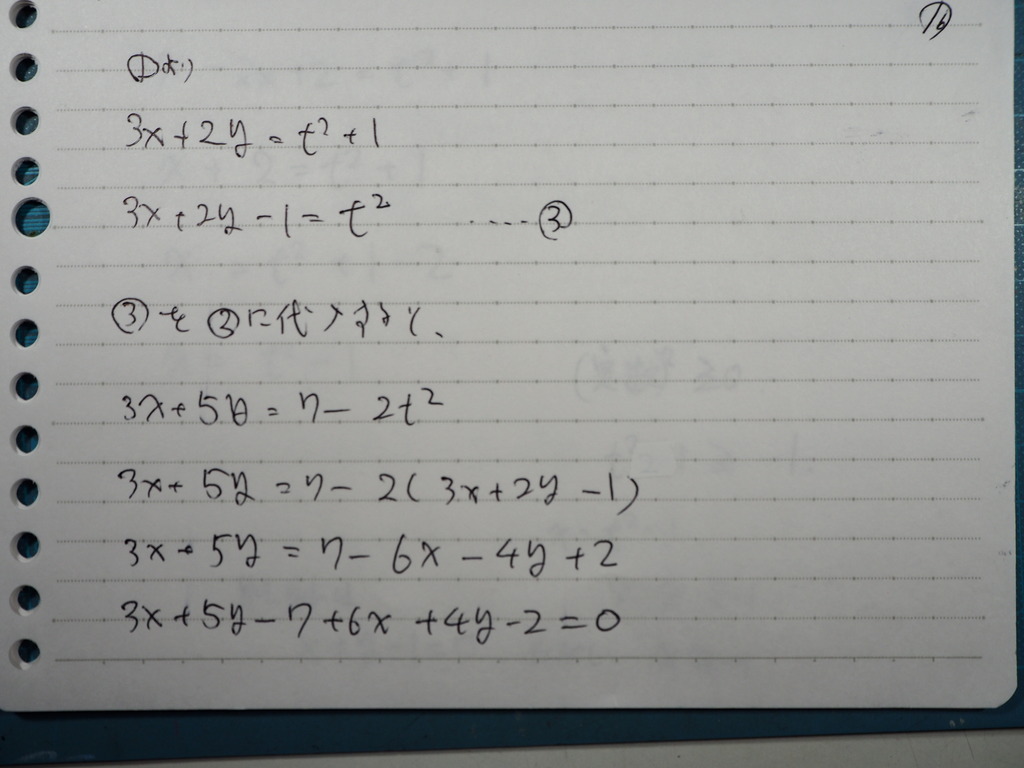 16
①より
3x+2y=t²+1
3x+2y-1=t² ....③
③を②に代入すると、
3x+5y=7-2t²
3x+5y=7-2(3x+2y-1)
3x+5y=7-6x-4y+2
3x+5y-7+6x+4y-2=0